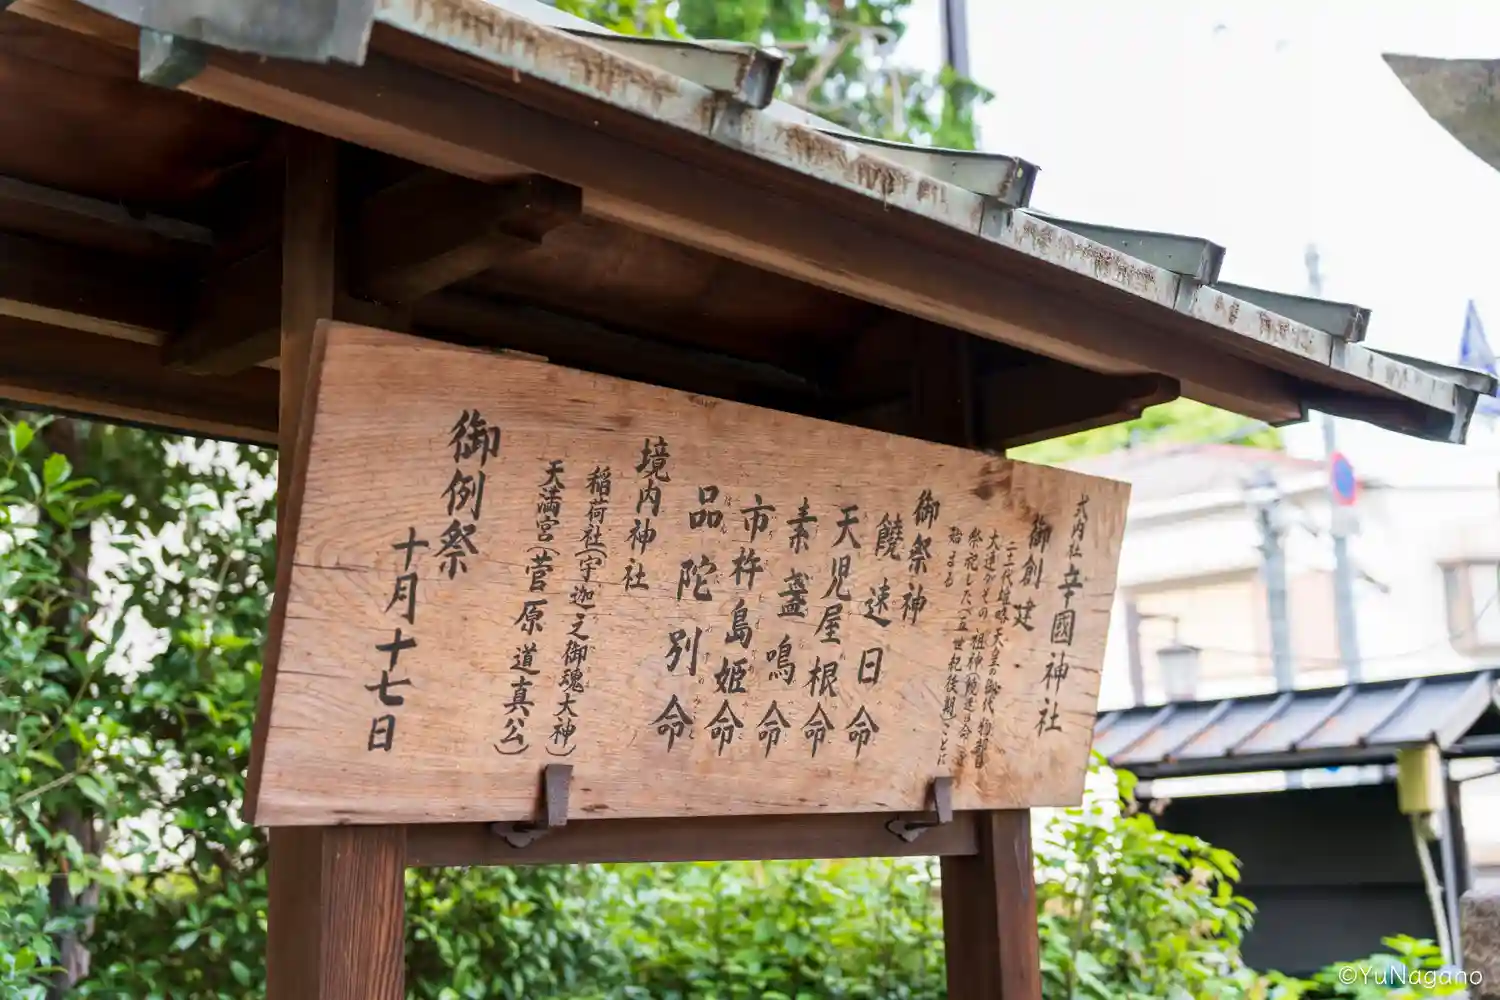 式内社 辛國神社
御創建
二十一代雄略天皇の御代、物部
大連がその祖神(饒速日命)を
祭祀した(五世紀後期)ことに
始まる
御祭神
饒速日命
天児屋根命
素盞鳴命
市杵島姫命
品陀別命
境内神社
稲荷社(宇迦之御魂大神)
天満宮(菅原道真公)
御例祭
十月十七日
©YuNagano